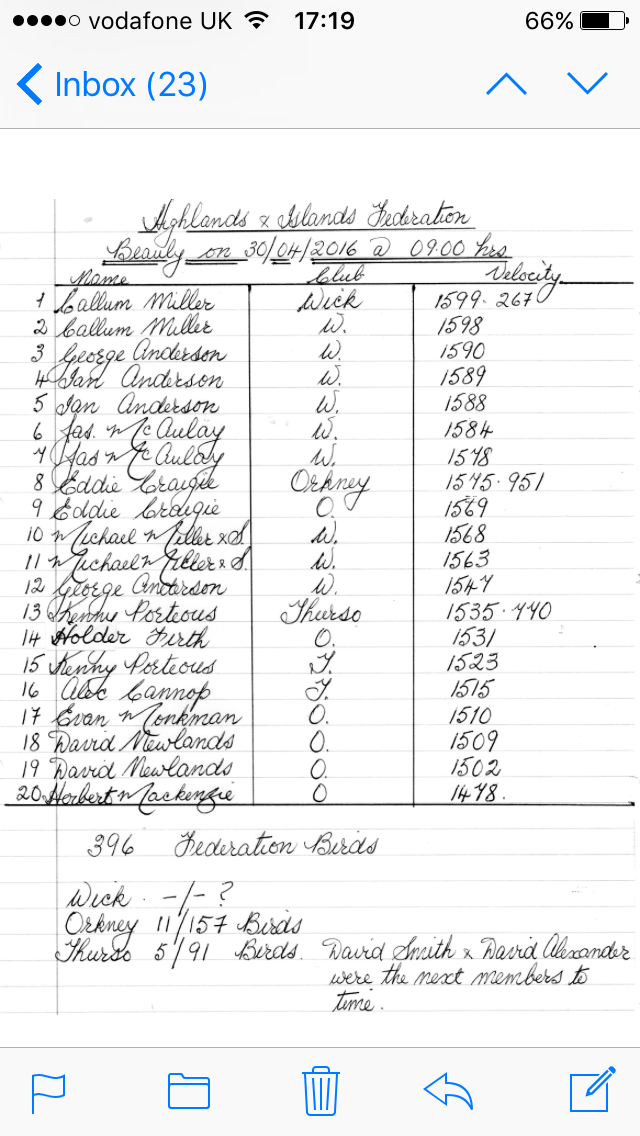 vodafone UK 17:19 66%
Inbox (23)
Highlands & Islands Federation
Beauly on 30/04/2016 @ 09.00 hrs
Name Club Velocity
1 Callum Miller Wick 1599.267
2 Callum Miller W. 1598
3 George Anderson W. 1590
4 Ian Anderson W. 1589
5 Ian Anderson W. 1588
6 Jas. McAulay W. 1584
7 Jas McAulay W. 1578
8 Eddie Craigie Orkney 1575.951
9 Eddie Craigie O. 1569
10 Michael Miller & S. W. 1568
11 Michael Miller & S. W. 1563
12 George Anderson W. 1547
13 Kenny Porteous Thurso 1535.770
14 Holder Firth O. 1531
15 Kenny Porteous T. 1523
16 Alec Cannop T. 1515
17 Evan Monkman O. 1510
18 David Newlands O. 1509
19 David Newlands O. 1502
20. Herbert Mackenzie O 1478.
396 Federation Birds
Wick. -/- ?
Orkney 11/157 Birds
Thurso 5/91 Birds. David Smith & David Alexander
were the next members to
time.